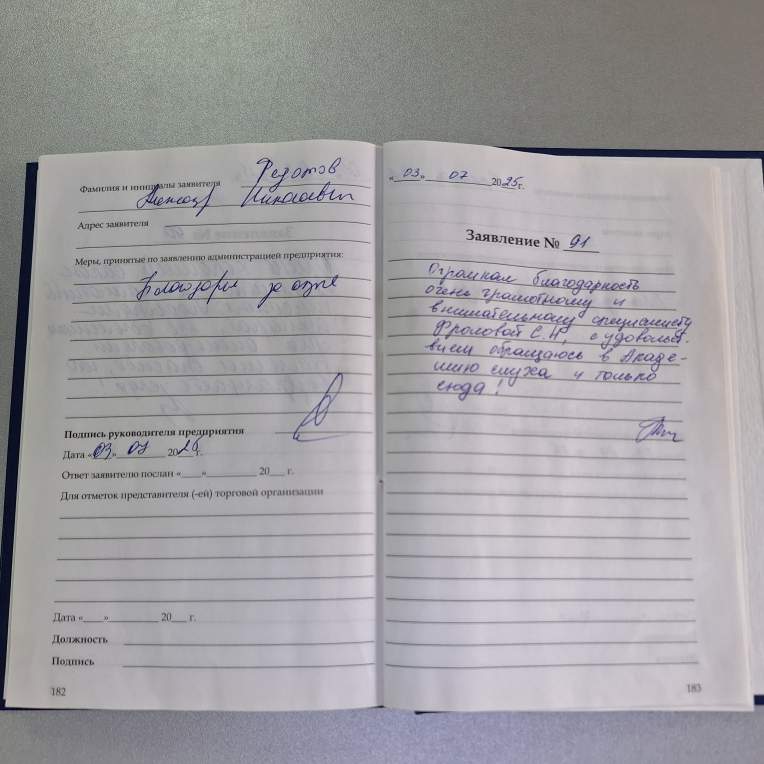 Фамилия и инициалы заявителя Федотов
Александр Николаевич
Адрес заявителя
Меры, принятые по заявлению администрацией предприятия:
Благодарим за отзыв
Подпись руководителя предприятия
Дата «03» 07 2025 г.
Ответ заявителю послан «____»__________ 20___ г.
Для отметок представителя (-ей) торговой организации
Дата «____» __________ 20___ г.
Должность
Подпись
182
«03» 07 2025г.
Заявление № 91
Огромная благодарность
очень грамотному и
внимательному специалисту
Фроловой С.Н, с удовольст-
вием обращаюсь в Акаде-
мию слуха и только
сюда!
183